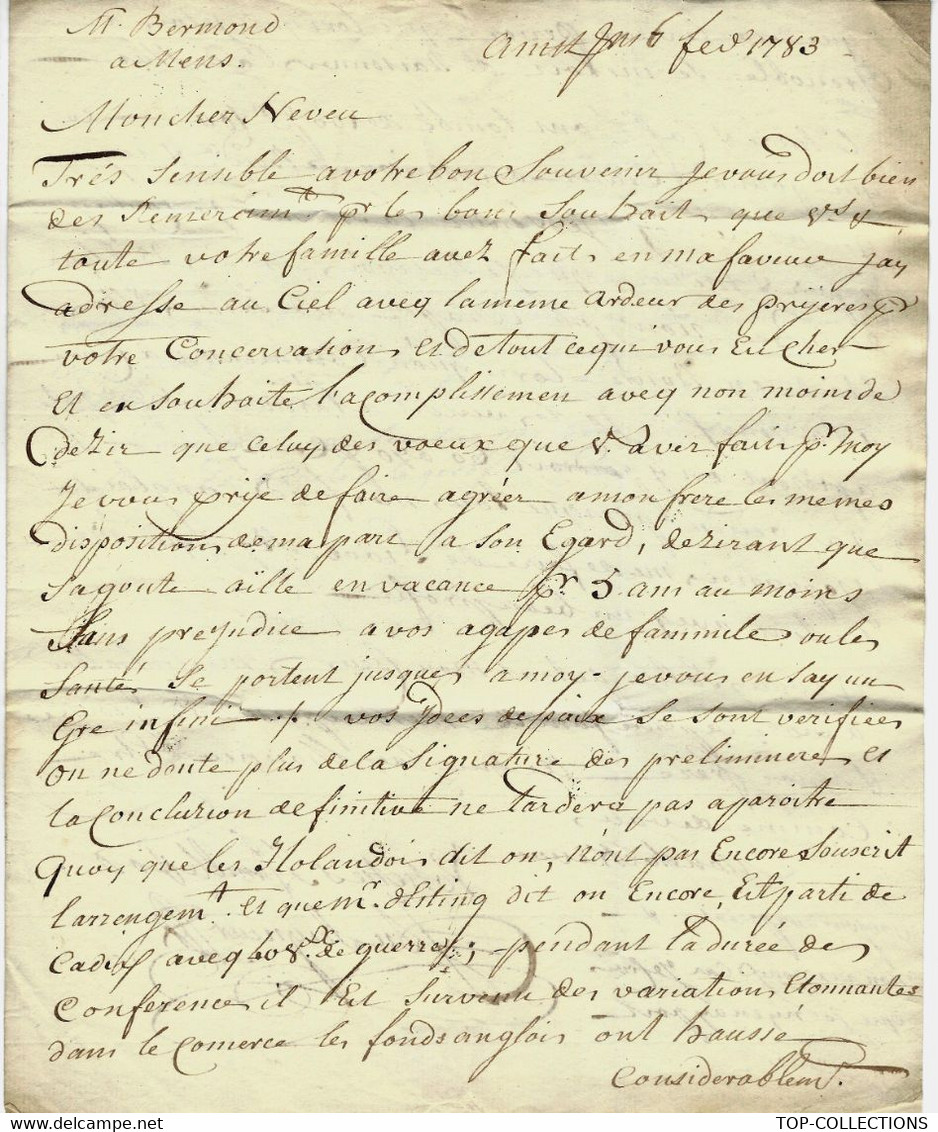 Mr. Bermond
a Mens.
Amst Jm 6 fevr 1783
Mon cher Neveu
Trés Sensible a votre bon Souvenir Je vous doit bien
des Remercimts. pr les bons Souhaits que vs. &
toute votre famille avez fait en ma faveur Jay
adresse au Ciel aveq la meme ardeur des prijeres pr
votre Concervation, et de tout ce qui vous Est Cher
Et en Souhaite l'acomplissemen aveq non moins de
dezir que Celuy des voeux que vs. aver fait pr. Moy
Je vous prije de faire agréer a mon frere les mémes
dispositions de ma part a son Egard, dezirant que
sa goute aïlle en vacance pr. 5 ans au moins
Sans prejudice a vos agapes de fammile ou les
Santés se portent jusques a moy. Je vous en Say un
Gre infini ./. vos Ydees de paix Se sont verifiées
on ne doute plus de la Signature des preliminere Et
la Conclusion definitive ne tardera pas a paroitre
Quoy que les Holandois dit on, n'ont pas Encore Souscrit
l'arrengemt. Et que mr. d'Esting dit on Encore, Est parti de
Cadix aveq 40 Vx. de guerre; pendant la durée des
Conferences il Est Survenu des variations Etonnantes
dans le Comerce les fonds anglois ont hausse
Considerablemt.
TOP-COLLECTIONS